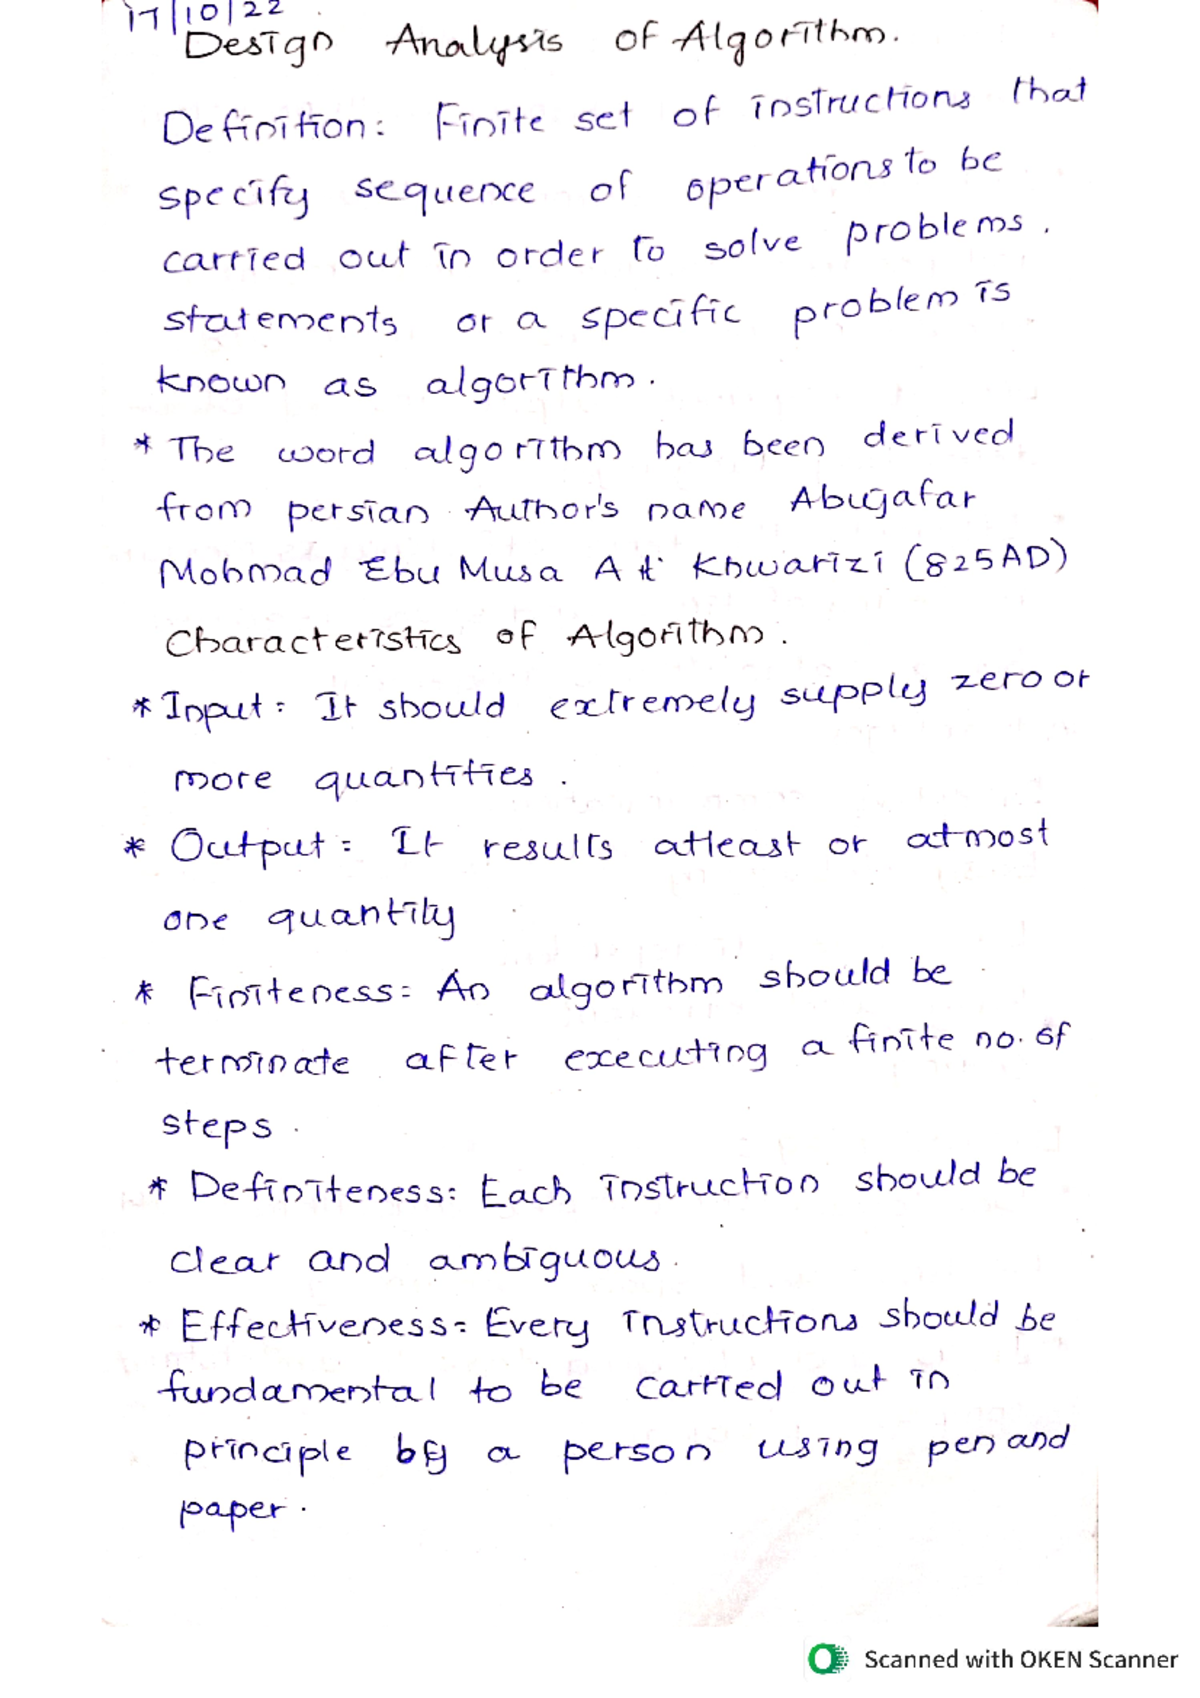 17/10/22
Design Analysis of Algorithm.
Definition: Finite set of instructions that
specify sequence of operations to be
carried out in order to solve problems.
statements or a specific problem is
known as algorithm.
* The word algorithm has been derived
from persian Author's name Abugafar
Mohmad Ebu Musa Khwarizi (825AD)
Characteristics of Algorithm.
* Input: It should extremely supply zero or
more quantities.
* Output: It results atleast or atmost
one quantity
* Finiteness: An algorithm should be
terminate after executing a finite no. of
steps.
* Definiteness: Each instruction should be
clear and ambiguous.
* Effectiveness: Every instructions should be
fundamental to be carried out in
principle by a person using pen and
paper.
Scanned with OKEN Scanner